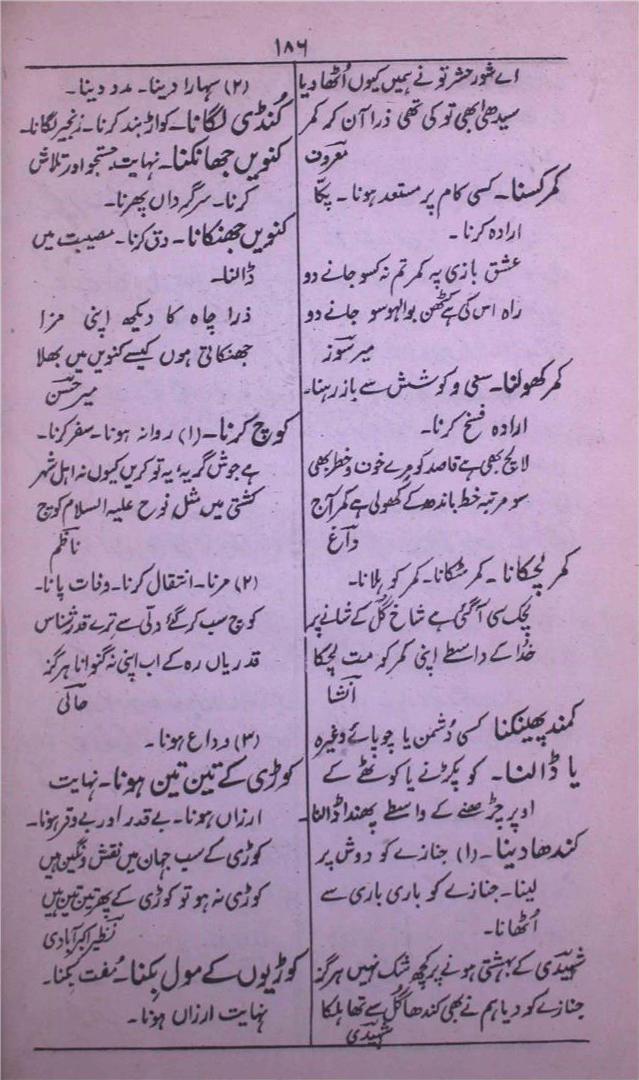 ۱۸۶
اے شور حشر تو نے ہمیں کیوں اُٹھا دیا
سیدھی ابھی تو کی تھی ذرا آن کر کمر
معروف
کمر کسنا۔ کسی کام پر مستعد ہونا۔ پکّا
ارادہ کرنا۔
عشق بازی پہ کمر تم نہ کسو جانے دو
راہ اس کی ہے کٹھن بوالہوسو جانے دو
میر سوز
کمر کھولنا۔ سعی و کوشش سے باز رہنا۔
ارادہ فسخ کرنا۔
لالچ بھی ہے قاصد کو مرے خوف و خطر بھی
سو مرتبہ خط باندھ کے کھولی ہے کمر آج
داغ
کمر لچکانا۔ کمر مٹکانا۔ کمر کو ہلانا۔
لچک سی آ گئی ہے شاخ گُل کے شانے پر
خدا کے واسطے اپنی کمر کو مت لچکا
انشا
کمند پھینکنا کسی دُشمن یا چوپائے وغیرہ
یا ڈالنا۔ کو پکڑنے یا کوٹھے کے
اوپر چڑھنے کے واسطے پھندا ڈالنا۔
کندھا دینا۔ (۱) جنازے کو دوش پر
لینا۔ جنازے کو باری باری سے
اُٹھانا۔
شہیدی کے بہشتی ہونے پر کچھ شک نہیں ہرگز
جنازے کو دیا ہم نے بھی کندھا گُل سے تھا ہلکا
شہیدی
(۲) سہارا دینا۔ مدد دینا۔
کُنڈی لگانا۔ کواڑ بند کرنا۔ زنجیر لگانا۔
کنویں جھانکنا۔ نہایت جستجو اور تلاش
کرنا۔ سرگرداں پھرنا۔
کنویں جھنکانا۔ دق کرنا۔ مصیبت میں
ڈالنا۔
ذرا چاہ کا دیکھ اپنی مزا
جھنکاتی ہوں کیسے کنویں میں بھلا
میر حسن
کوچ کرنا۔ (۱) روانہ ہونا۔ سفر کرنا۔
ہے جوش گریہ، یہ تو کریں کیوں نہ اہل شہر
کشتی میں مثل نوح علیہ السلام کوچ
ناظم
(۲) مرنا۔ انتقال کرنا۔ وفات پانا۔
کوچ سب کر گئے دلّی سے ترے قدر شناس
قدر یاں رہ کے اب اپنی نہ گنوانا ہرگز
حالی
(۳) وداع ہونا۔
کوڑی کے تین تین ہونا۔ نہایت
ارزاں ہونا۔ بے قدر اور بے وقر ہونا۔
کوڑی کے سب جہان میں نقش و نگین ہیں
کوڑی نہ ہو تو کوڑی کے پھر تین تین ہیں
نظیر اکبر آبادی
کوڑیوں کے مول بکنا۔ مُفت بکنا۔
نہایت ارزاں ہونا۔